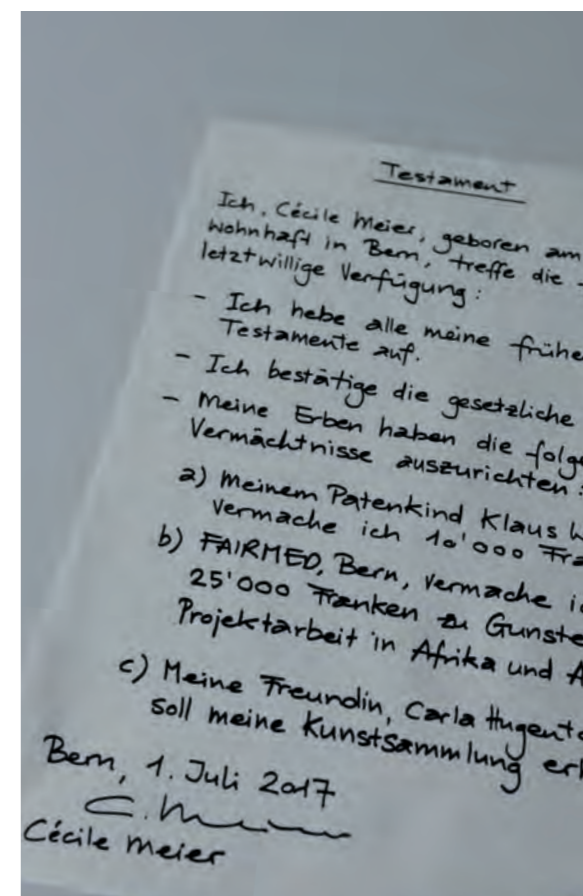 Testament
Ich, Cécile Meier, geboren am
wohnhaft in Bern, treffe die
letztwillige Verfügung:
- Ich hebe alle meine frühe
Testamente auf.
- Ich bestätige die gesetzliche
- Meine Erben haben die folge
Vermächtnisse auszurichten:
a) Meinem Patenkind Klaus
vermache ich 10'000 Fra
b) FAIRMED, Bern, vermache i
25'000 Franken zu Gunste
Projektarbeit in Afrika und A
c) Meine Freundin, Carla Hugento
soll meine Kunstsammlung erh
Bern, 1. Juli 2017
C. Meier
Cécile Meier